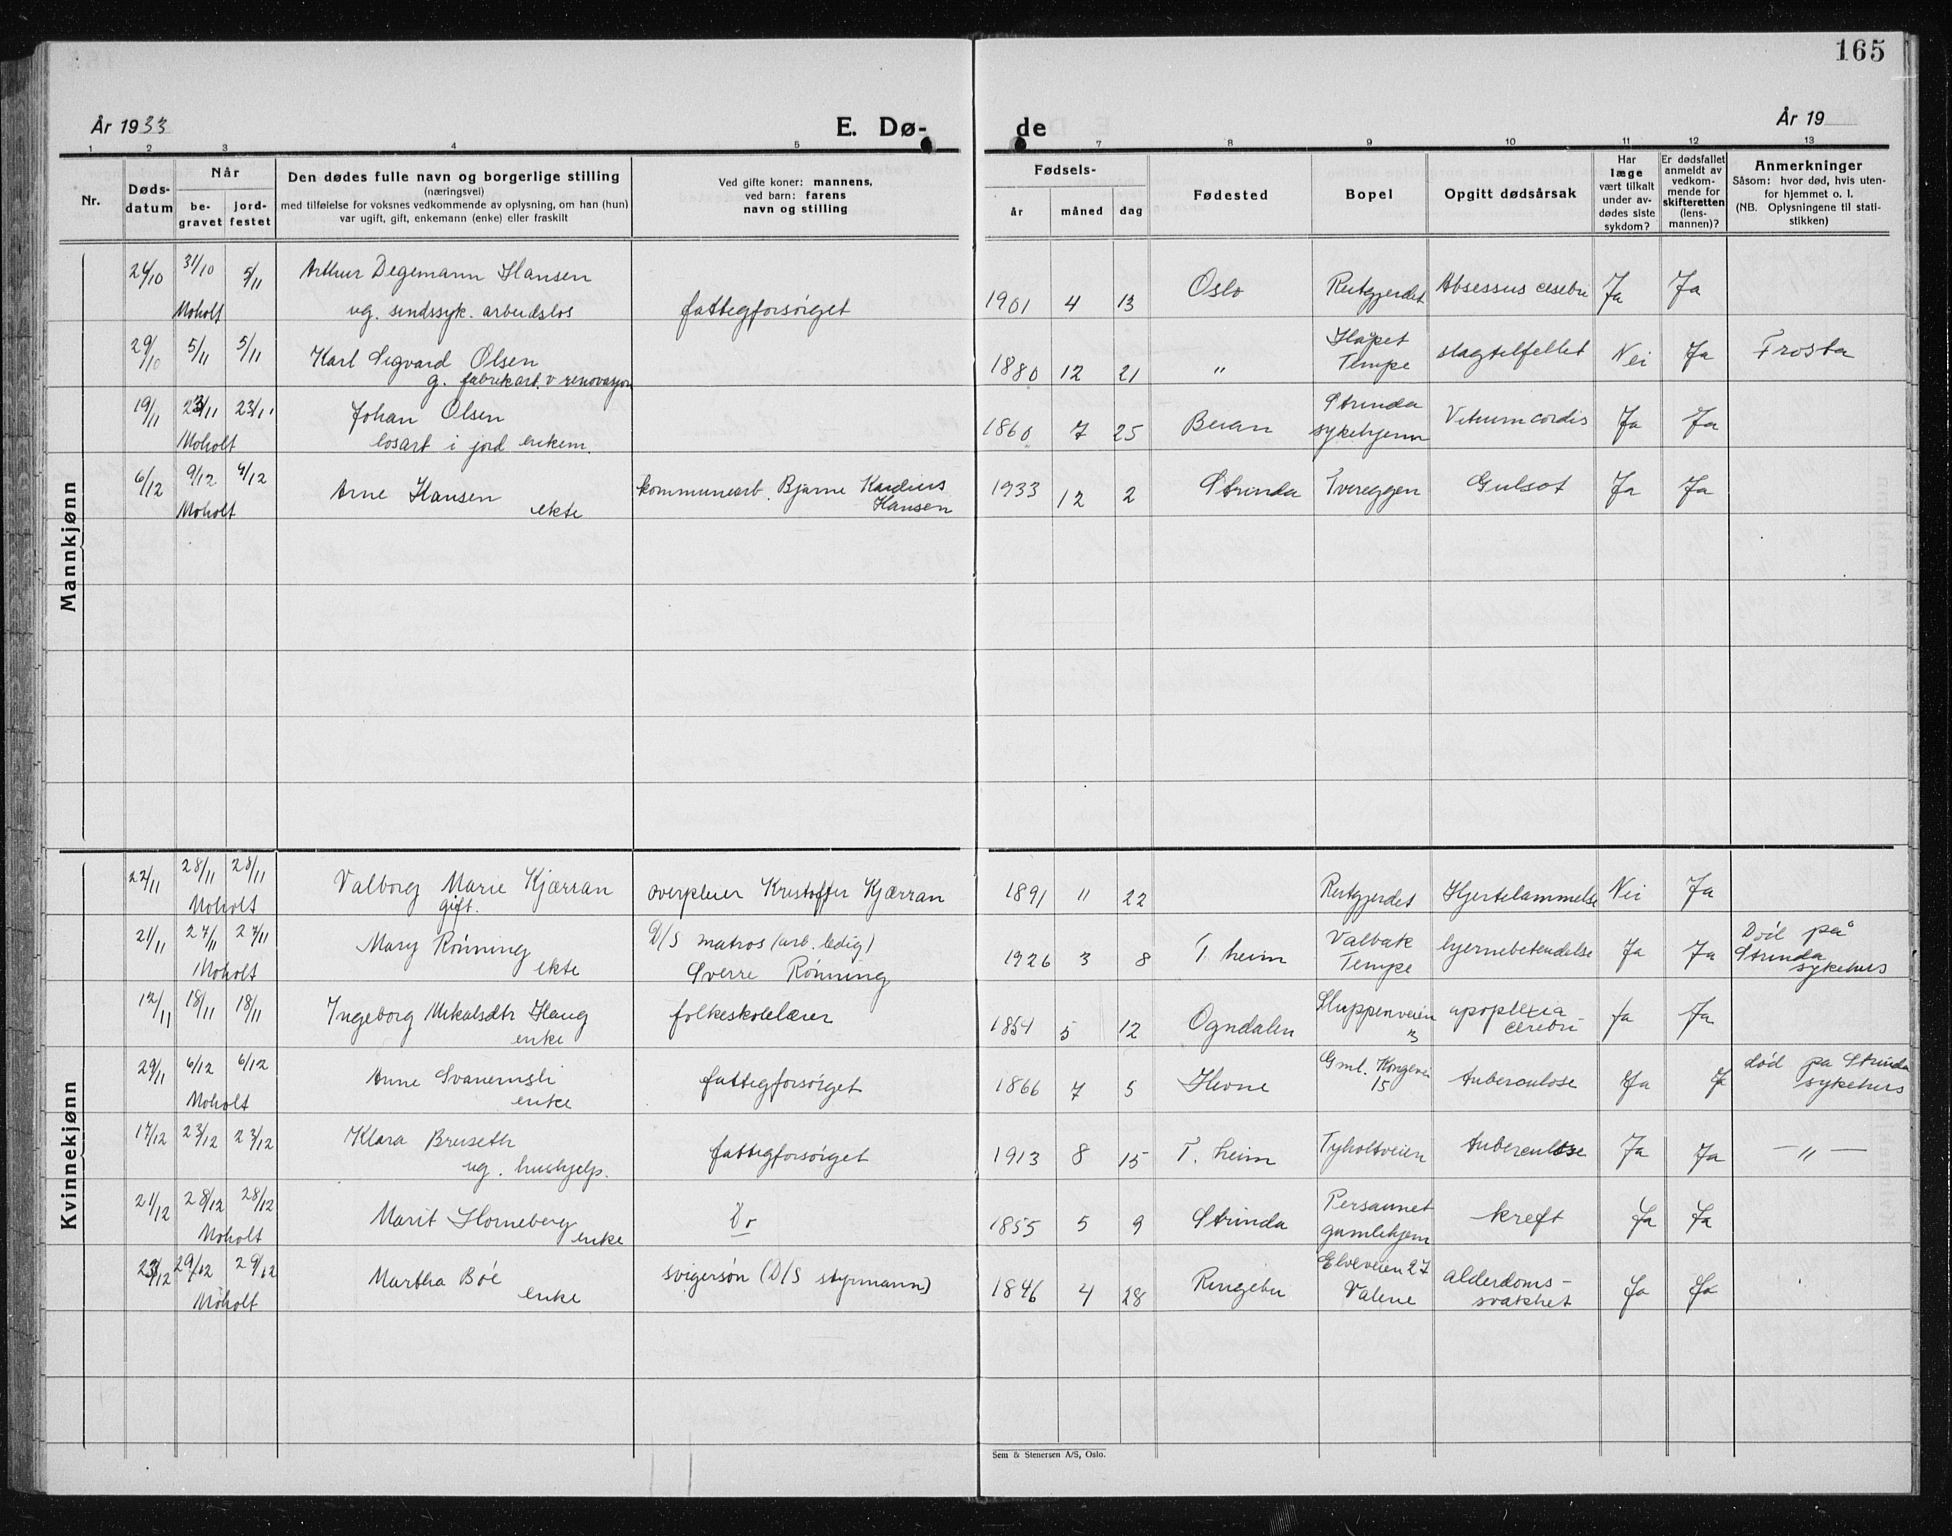 165
År 1933 E. Dø- de År 19
1 2 3 4 5 7 8 9 10 11 12 13
Nr. Døds-datum Når be-gravet jord-festet Den dødes fulle navn og borgerlige stilling (næringsvei) med tilføielse for voksnes vedkommende av oplysning, om han (hun) var ugift, gift, enkemann (enke) eller fraskilt Ved gifte koner: mannens, ved barn: farens navn og stilling Fødsels- år måned dag Fødested Bopel Opgitt dødsårsak Har læge vært tilkalt under av-dødes siste sykdom? Er dødsfallet anmeldt av vedkom-mende for skifteretten (lens-mannen)? Anmerkninger Såsom: hvor død, hvis uten-for hjemmet o. l. (NB. Oplysningene til stati-stikken)
Mannkjønn
24/10 31/10 5/11 Arthur Degemann Hansen Oslo Reitgjerdet Absessus cerebri Ja Ja
Moholt ug. sindssyk. arbeidsløs fattigforsørget 1901 4 13
29/10 5/11 5/11 Karl Sigvard Olsen 1880 12 21 " Håpet Tempe slagtilfellet Nei Ja Frosta
g. fabrikarb. v renovasjon
19/11 23/11 23/11 Johan Olsen 1860 7 25 Beian Strinda sykehjem Vitium cordis Ja Ja
Moholt løsarb i jord enkem.
6/12 9/12 9/12 Arne Hansen kommunearb. Bjarne 1933 12 2 Strinda Tvereggen Gulsot Ja Ja
Moholt ekte Hansen
Kvinnekjønn
22/11 28/11 28/11 Valborg Marie Kjærran overpleier Kristoffer Kjærran 1891 11 22 Reitgjerdet Hjertelammelse Nei Ja
Moholt gift.
21/11 27/11 27/11 Mary Rönning D/S matros (arb. ledig) 1926 3 8 T. heim Valbak Tempe hjernebetendelse Ja Ja Död på Strinda sykehus
Moholt ekte Sverre Rönning
12/11 18/11 18/11 Ingeborg Mikalsdtr Haug folkeskolelærer 1854 5 12 Ogndalen Sluppenveien 3 apoplexia cerebri Ja Ja
enke
29/11 6/12 6/12 Anne Svanemsli fattigforsørget 1866 7 5 Hevne Gml. Kongevei 15 tuberculose Ja J död på Strinda sykehus
Moholt enke
17/12 23/12 23/12 Klara Bruseth fattigforsørget 1913 8 15 T. heim Tyholtveien tuberculose Ja Ja — " —
ug. hushjelp.
21/12 28/12 28/12 Marit Horneberg Do 1855 5 9 Strinda Persaunet gamlehjem kreft Ja Ja
Moholt enke
23/12 29/12 29/12 Martha Böe svigersøn (D/S styrmann) 1846 4 28 Ringebu Elveveien 27 Valene alderdoms-svakhet Ja Ja
Moholt enke
Sem & Stenersen A/S, Oslo.